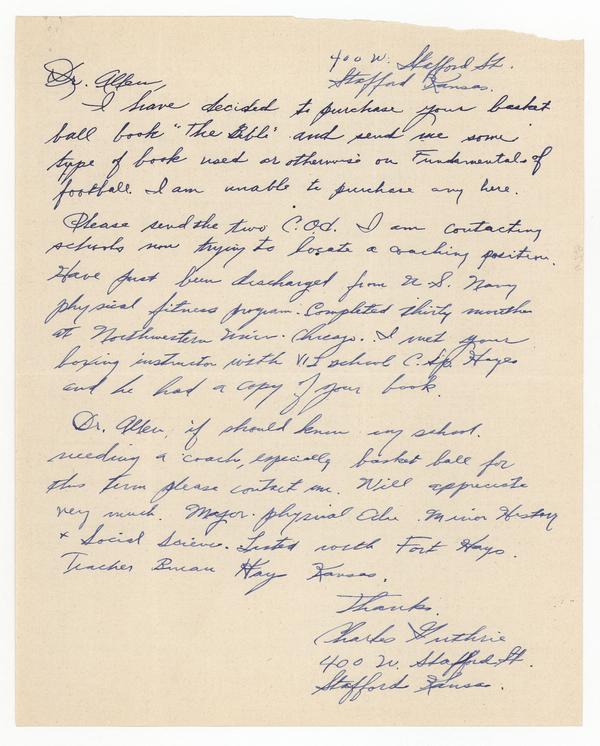 400 W. Stafford St.
Stafford Kansas.
Dr. Allen,
I have decided to purchase your basket
ball book "The Bible" and send me some
type of book used or otherwise on Fundamentals of
football. I am unable to purchase any here.
Please send the two C.O.d. I am contacting
schools now trying to locate a coaching position.
Have just been discharged from U.S. Navy
physical fitness program. Completed thirty months
at Northwestern Univ. Chicago. I met your
boxing instructor with V12 school C. Hayes
and he had a copy of your book.
Dr. Allen, if should know any school
needing a coach, especially basket ball for
this term please contact me. Will appreciate
very much. Major physical Edu. Minor History
+ Social Science. Listed with Fort Hays
Teacher Bureau Hay Kansas.
Thanks.
Charles Guthrie
400 W. Stafford St.
Stafford Kansas.